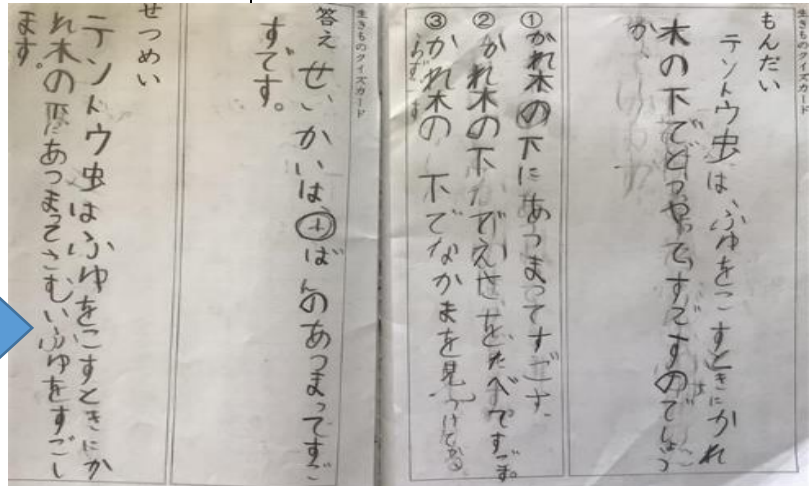 生きものクイズカード
もんだい
テントウ虫は、ふゆをこすときにかれ
木の下でどうやってすごすのでしょう
か。
① かれ木の下にあつまってすごす。
② かれ木の下でえさをたべてすごす。
③ かれ木の下でなかまを見つけてから
生きものクイズカード
答え
せいかいは①ばんのあつまってすご
すです。
せつめい
テントウ虫はふゆをこすときにか
れ木の下にあつまってさむいふゆをすごし
ます。